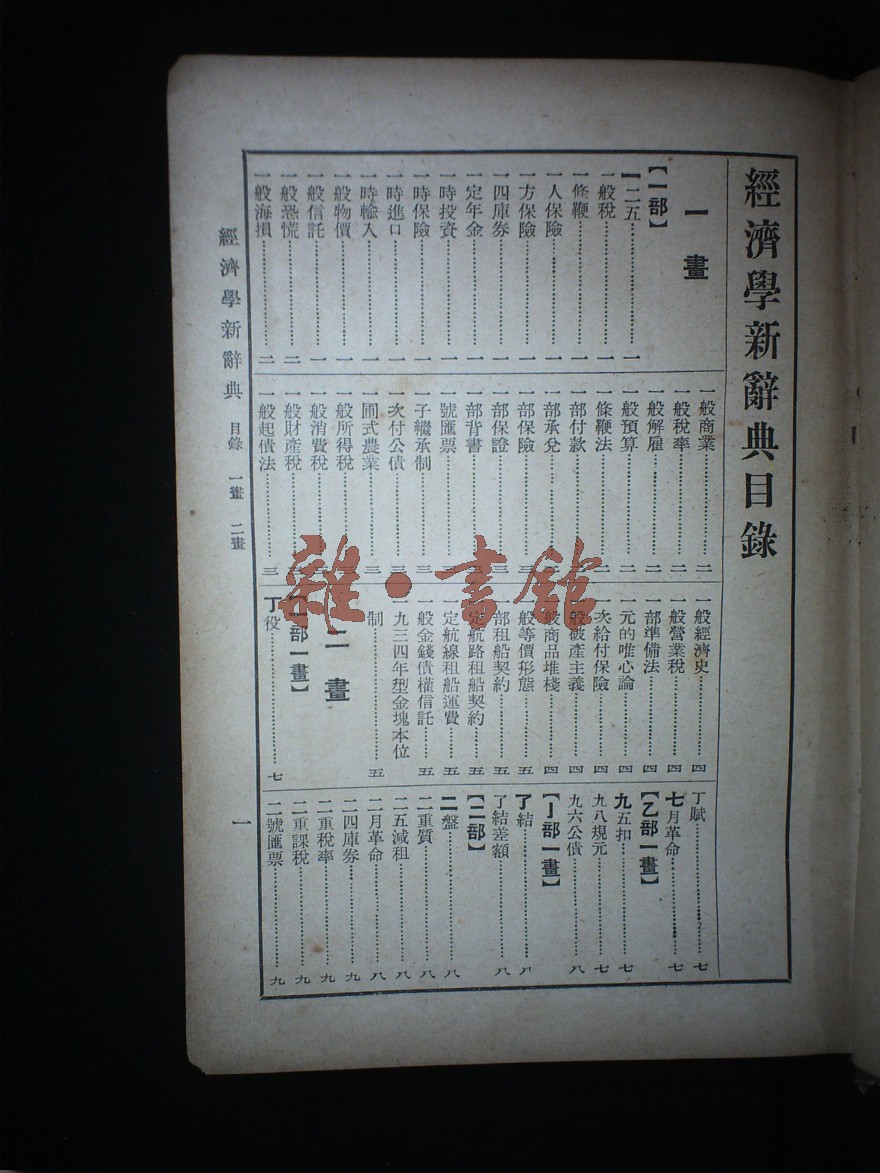 經濟學新辭典目錄
一畫
【一部】
一二五……一
一般稅……一
一條鞭……一
一人保險……一
一方保險……一
一四庫券……一
一定年金……一
一時投資……一
一時保險……一
一時進口……一
一時輸入……一
一般物價……一
一般信託……一
一般恐慌……二
一般海損……二
一般商業……二
一般稅率……二
一般解雇……二
一般預算……二
一條鞭法……二
一部付款
一部承兌
一部保險……三
一部保證……三
一部背書
一號匯票……三
一子繼承制……三
一次付公債……三
一圃式農業……三
一般所得稅
一般消費稅
一般財產稅
一般起債法……三
一般經濟史……四
一般營業稅……四
一部準備法……四
一元的唯心論……四
一次給付保險……四
一般破產主義……四
一般商品堆棧……四
一般等價形態……五
一部租船契約……五
一定航路租船契約……五
一定航線租船運費……五
一般金錢債權信託……五
一九三四年型金塊本位
制……五
二畫
【一部一畫】
丁役……七
丁賦……七
七月革命……七
【乙部一畫】
九五扣……七
九八規元……七
九六公債……八
【亅部一畫】
了結……八
了結差額……八
【二部】
二盤……八
二重質……八
二五減租……八
二月革命……八
二四庫券……九
二重稅率……九
二重課稅……九
二號匯票……九
經濟學新辭典 目錄 一畫 二畫
一
雜·書館